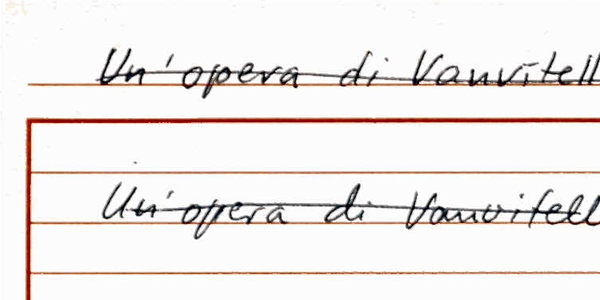 Un'opera di Vanvitell
Un'opera di Vanvitell